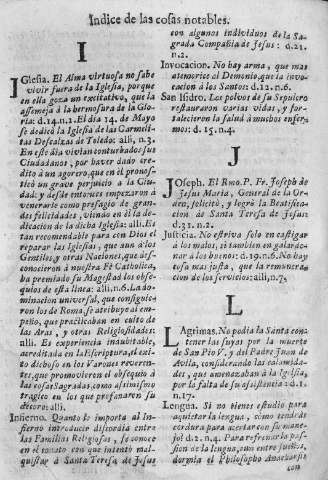 Indice de las cosas notables.
I
IGlesia. El Alma virtuosa no sabe
vivir fuera de la Iglesia, porque
en ella goza un excitativo, que la
assemeja à la hermosura de la Glo-
ria: d.14.n.1. El dia 14. de Mayo
se dedicò la Iglesia de las Carmeli-
tas Descalzas de Toledo: alli, n.3.
En esse dia vivian conturbados sus
Ciudadanos, por haver dado cre-
dito à un agorero, que en èl pronos-
ticò un grave perjuicio à la Ciu-
dad: y desde entonces empezaron à
venerarle como presagio de gran-
des felicidades, viendo en èl la de-
dicacion de la dicha Iglesia: alli. Es
tan recomendable para con Dios el
reparar las Iglesias, que aun à los
Gentiles, y otras Naciones, que des-
conocieron à nuestra Fè Catholica,
ha premiado su Magestad los obse-
quios de esta linea: alli. n.6. La do-
minacion universal, que consiguie-
ron los de Roma, se atribuye al em-
peño, que practicaban en culto de
las Aras, y otras Religiosidades:
alli. Es experiencia indubitable,
acreditada en la Escriptura, el exi-
to dichoso en los Varones reveren-
tes, que promovieron el obsequio à
las cosas Sagradas, como assimismo
tragico en los que profanaron su
decoro: alli.
Infierno. Quanto le importa al In-
fierno introducir discordia entre
las Familias Religiosas, se conoce
en el conato con que intentò mal-
quistar à Santa Teresa de Jesus
con algunos individuos de la Sa-
grada Compañia de Jesus: d.21.
n.2.
Invocacion. No hay arma, que mas
atemorice al Demonio, que la invo-
cacion à los Santos: d.12.n.6.
San Isidro. Los polvos de su Sepulcro
restauraron varias vidas, y for-
talecieron la salud à muchos enfer-
mos: d.15.n.4.
J
JOseph. El Rmo. P. Fr. Joseph de
Jesus Maria, General de la Or-
den, solicitò, y logrò la Beatifica-
cion de Santa Teresa de Jesus:
d.31.n.2.
Justicia. No estriva solo en castigar
à los malos, si tambien en galardo-
nar à los buenos: d.19.n.6. No hay
cosa mas justa, que la remunera-
cion de los servicios: alli, n.7.
L
LAgrimas. No podia la Santa con-
tener las suyas por la muerte
de San Pio V. y del Padre Juan de
Avila, considerando las calamida-
des, que amenazaban à la Iglesia,
por la falta de su assistencia: d.1.
n.17.
Lengua. Si no tienes estudio para
aquietar la lengua, como tendràs
cordura para acertar con su mane-
jo? d.2.n.4. Para refrenar la pas-
sion de la lengua, aun entre sueños,
dormia el Philosopho Anacharsis
con